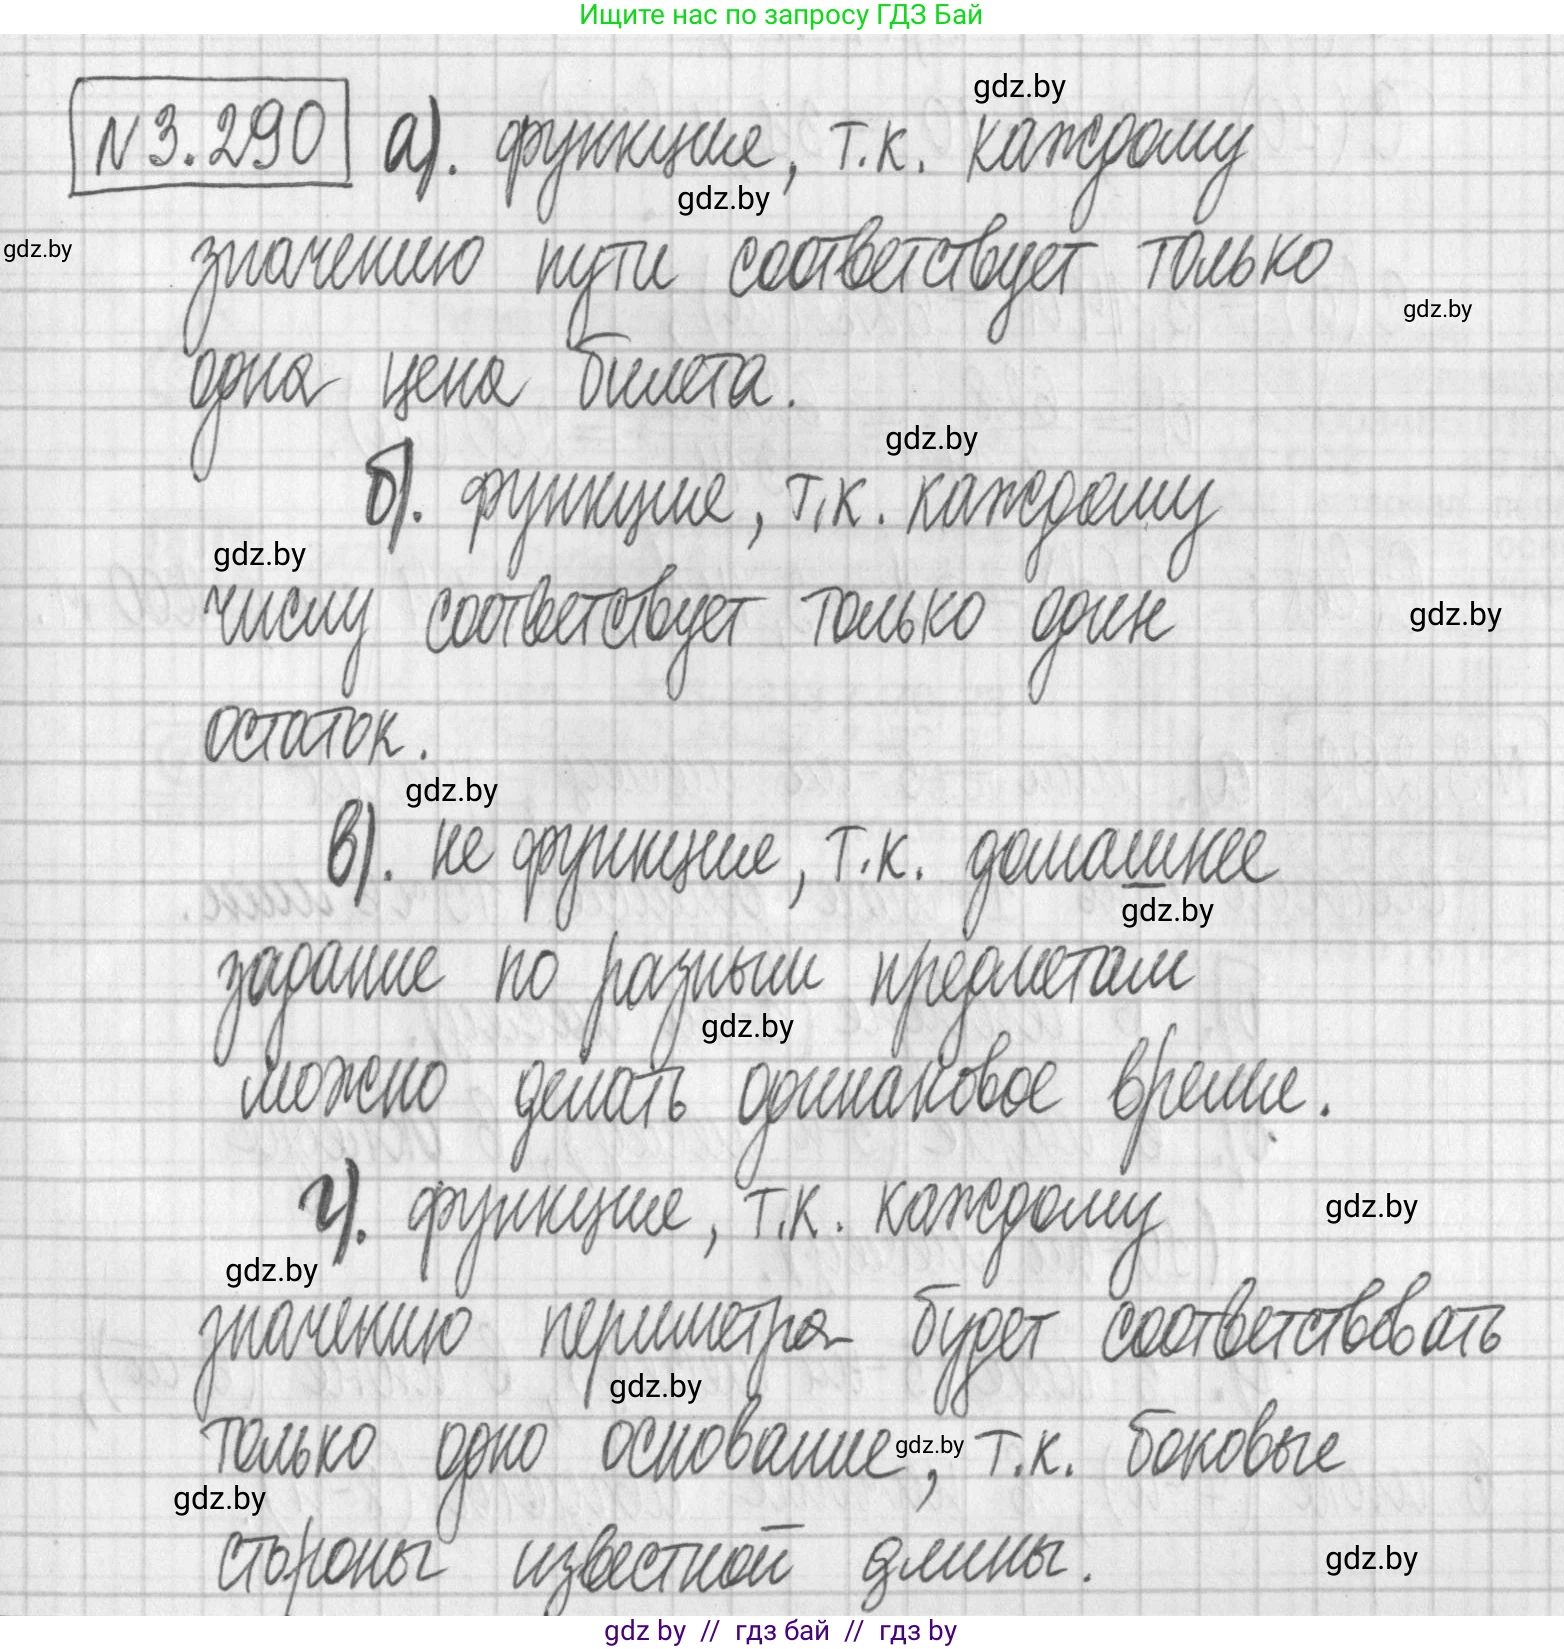 Ищите нас по запросу ГДЗ Бай
gdz.by
N3.290 а). функция, т.к. каждому
gdz.by
gdz.by
значению пути соответствует только
gdz.by
одна цена билета.
gdz.by
б). функция, т.к. каждому
gdz.by
числу соответствует только один
gdz.by
остаток.
gdz.by
в). не функция, т.к. домашнее
gdz.by
задание по разным предметам
gdz.by
можно делать одинаковое время.
г). функция, т.к. каждому
gdz.by
gdz.by
значению периметра будет соответствовать
gdz.by
только одно основание, т.к. боковые
gdz.by
gdz.by
стороны известной длины.
gdz.by
gdz by // гдз бай // гдз by